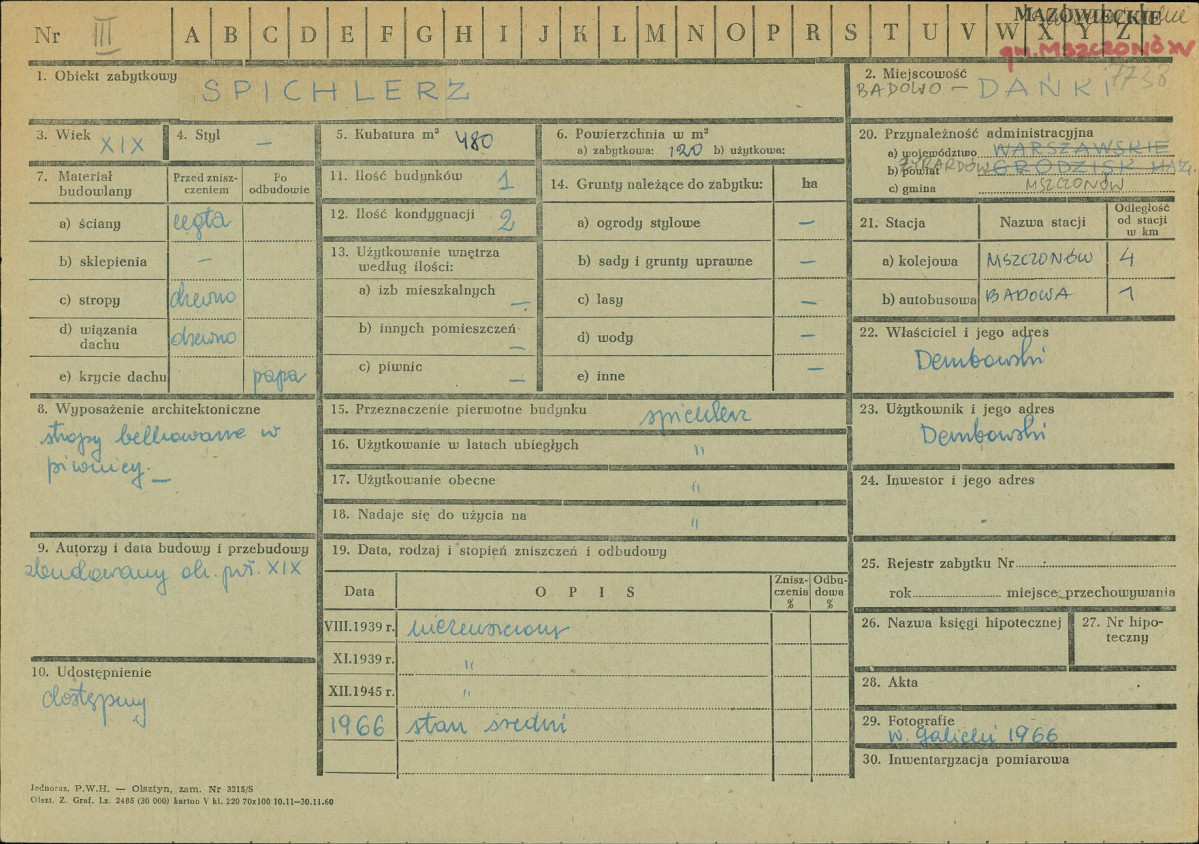 MAZOWIECKIE
Nr III A B C D E F G H I J K L M N O P R S T U V W X Y Z
gm. MSZCZONÓW
7738
1. Obiekt zabytkowy
SPICHLERZ
2. Miejscowość
BADOWO – DAŃKI
3. Wiek XIX
4. Styl —
5. Kubatura m³ 480
6. Powierzchnia w m²
a) zabytkowa: 120 b) użytkowa:
7. Materiał budowlany
Przed zniszczeniem
Po odbudowie
a) ściany cegła
b) sklepienia —
c) stropy drewno
d) wiązania dachu drewno
e) krycie dachu papa
8. Wyposażenie architektoniczne
stropy belkowane w
piwnicy. —
9. Autorzy i data budowy i przebudowy
zbudowany ok. poł. XIX
10. Udostępnienie
dostępny
11. Ilość budynków 1
12. Ilość kondygnacji 2
13. Użytkowanie wnętrza
według ilości:
a) izb mieszkalnych —
b) innych pomieszczeń —
c) piwnic —
14. Grunty należące do zabytku: ha
a) ogrody stylowe —
b) sady i grunty uprawne —
c) lasy —
d) wody —
e) inne —
15. Przeznaczenie pierwotne budynku spichlerz
16. Użytkowanie w latach ubiegłych "
17. Użytkowanie obecne "
18. Nadaje się do użycia na "
19. Data, rodzaj i stopień zniszczeń i odbudowy
Data OPIS Zniszczenia % Odbudowa %
VIII.1939 r. niezniszczony
XI.1939 r. "
XII.1945 r. "
1966 stan średni
20. Przynależność administracyjna
a) województwo WARSZAWSKIE
b) powiat ŻYRARDÓW GRODZISK MAZ.
c) gmina MSZCZONÓW
21. Stacja Nazwa stacji Odległość od stacji w km
a) kolejowa MSZCZONÓW 4
b) autobusowa BADOWA 1
22. Właściciel i jego adres
Dembowski
23. Użytkownik i jego adres
Dembowski
24. Inwestor i jego adres
25. Rejestr zabytku Nr
rok miejsce przechowywania
26. Nazwa księgi hipotecznej
27. Nr hipoteczny
28. Akta
29. Fotografie
W. Galicki 1966
30. Inwentaryzacja pomiarowa
Jednoraz. P.W.H. — Olsztyn, zam. Nr 3215/S
Olszt. Z. Graf. Lz. 2485 (30 000) karton V kl. 220 70x100 10.11—30.11.60